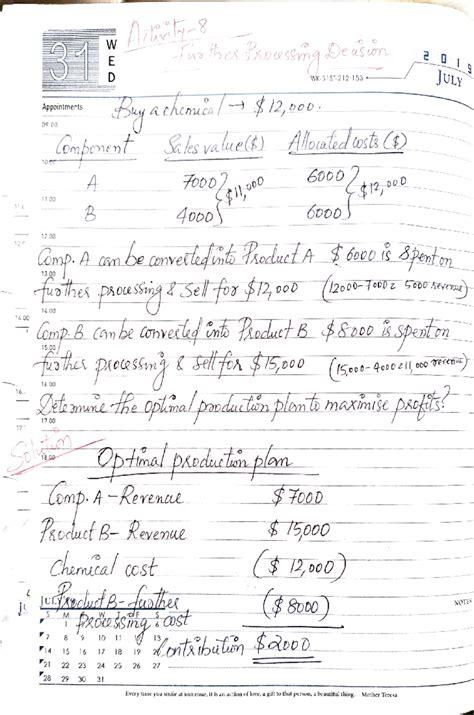 Activity-8
31 WED
Further Processing Decision
2019
JULY
WK-31 212-153
Appointments
Buy a chemical → $12,000.
09.00
Component Sales value($) Allocated costs ($)
10.00
A 7000 6000
$11,000 $12,000
B 4000 6000
12.00
Comp. A can be converted into Product A $6000 is spent on
13.00
further processing & sell for $12,000 (12000-7000= 5000 revenue)
14.00
Comp. B can be converted into Product B $8000 is spent on
15.00
further processing & sell for $15,000 (15,000-4000=11,000 revenue)
16.00
Determine the optimal production plan to maximise profits?
17.00
Solution
18.00
Optimal production plan
Comp. A - Revenue $7000
Product B- Revenue $ 15,000
Chemical cost ($ 12,000)
Product B- further ($ 8000)
processing cost
NOTES
JULY
S M W T F S
7 8 9 10 11 12 13
14 15 16 17 18 19 20
Contribution $2000
21 22 23 24 25 26 27
28 29 30 31
Every time you smile at someone, it is an action of love, a gift to that person, a beautiful thing. Mother Teresa